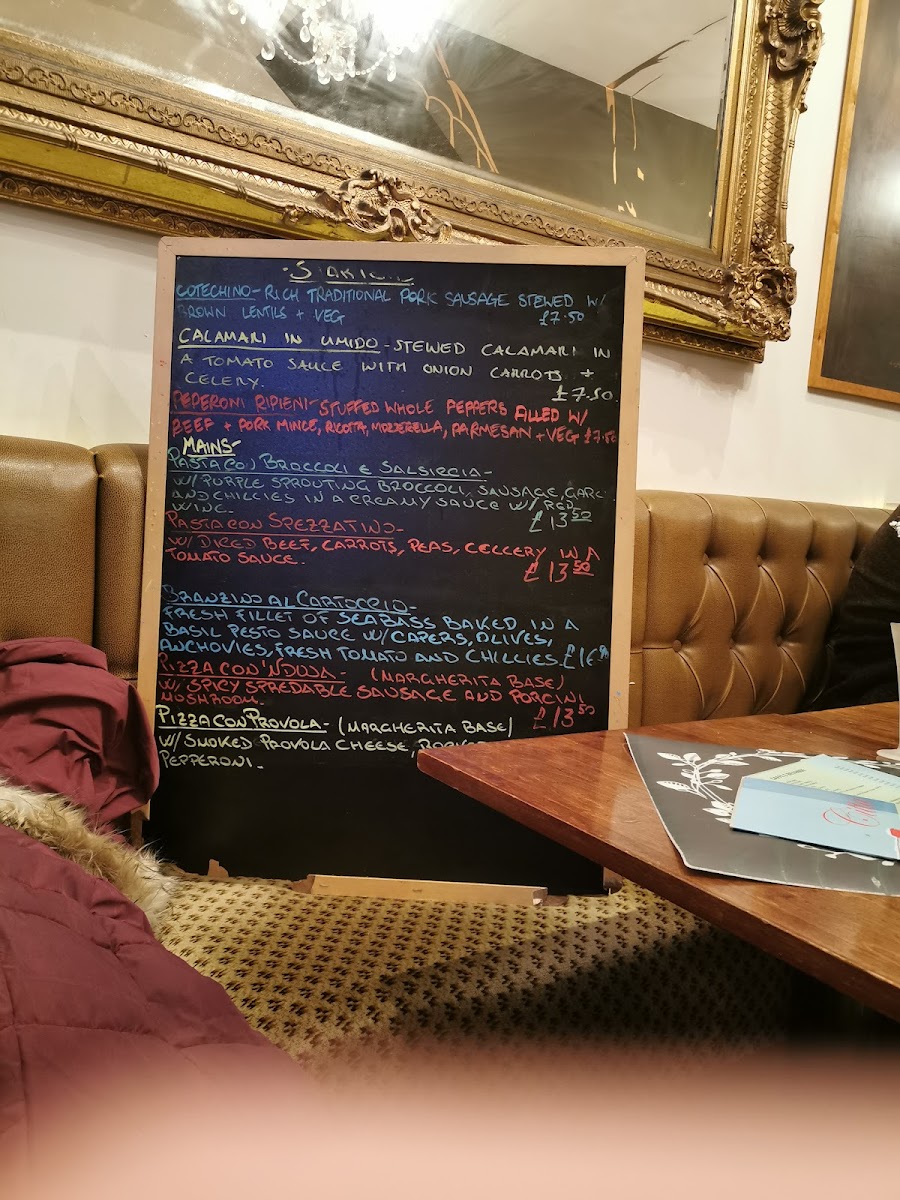 COTECHINO-RICH TRADITIONAL PORK SAUSAGE STEWED W/
BROWN LENTILS + VEG £7.50
CALAMARI IN UMIDO-STEWED CALAMARI IN
A TOMATO SAUCE WITH ONION CARROTS +
CELERY. £7.50
PEPERONI RIPIENI-STUFFED WHOLE PEPPERS FILLED W/
BEEF + PORK MINCE, RICOTTA, MOZZERELLA, PARMESAN + VEG £7.50
MAINS-
PASTA CON BROCCOLI E SALSICCIA-
W/ PURPLE SPROUTING BROCCOLI, SAUSAGE, GARLIC
AND CHILLIES IN A CREAMY SAUCE W/ RED
WINE. £13.50
PASTA CON SPEZZATINO-
W/ DICED BEEF, CARROTS, PEAS, CELLERY IN A
TOMATO SAUCE. £13.50
BRANZINO AL CARTOCCIO-
FRESH FILLET OF SEABASS BAKED IN A
BASIL PESTO SAUCE W/ CAPERS, OLIVES,
ANCHOVIES, FRESH TOMATO AND CHILLIES.
PIZZA CON 'NDUJA- (MARGHERITA BASE)
W/ SPICY SPREDABLE SAUSAGE AND PORCINI
MUSHROOM. £13.50
PIZZA CON PROVOLA- (MARGHERITA BASE)
W/ SMOKED PROVOLA CHEESE,
PEPPERONI.